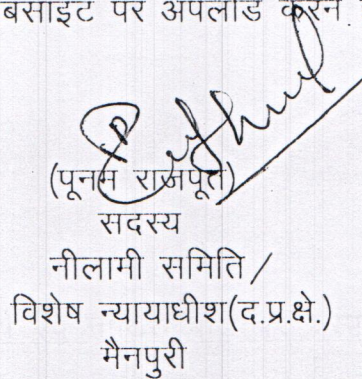 बसाइट पर अपलोड करने
(पूनम राजपूत)
सदस्य
नीलामी समिति/
विशेष न्यायाधीश(द.प्र.क्षे.)
मैनपुरी